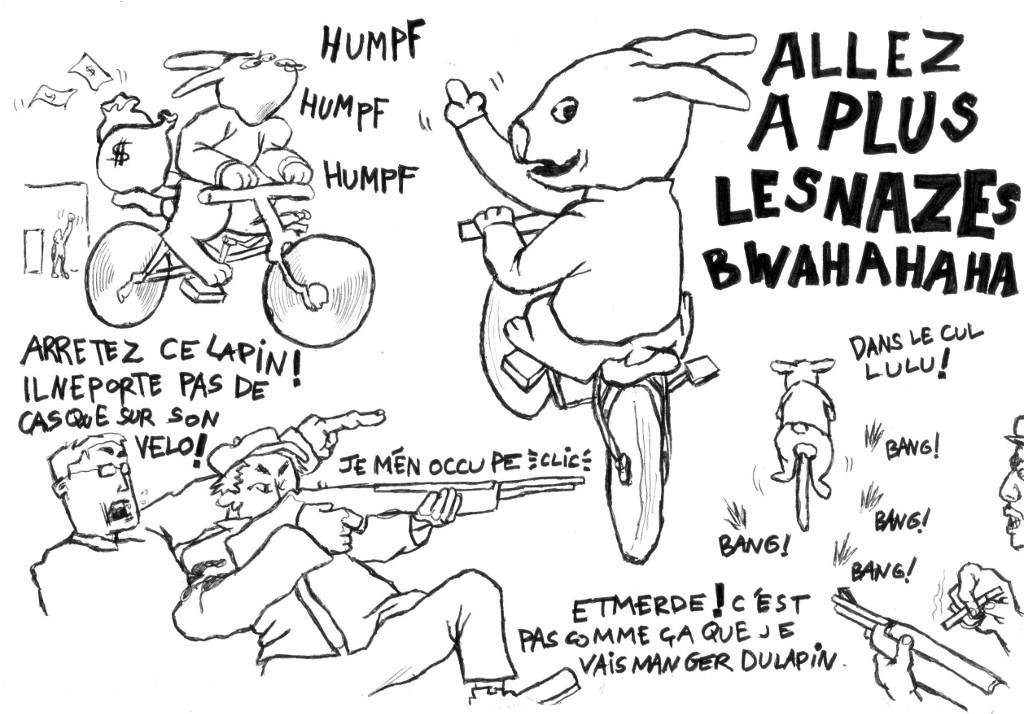 HUMPF
HUMPF
HUMPF
$
$
ALLEZ
A PLUS
LES NAZES
BWAHAHAHA
ARRETEZ CE LAPIN!
IL NE PORTE PAS DE
CASQUE SUR SON
VELO!
JE M'EN OCCUPE CLIC
DANS LE CUL
LULU!
BANG!
BANG!
BANG!
BANG!
ET MERDE! C'EST
PAS COMME ÇA QUE JE
VAIS MANGER DU LAPIN.